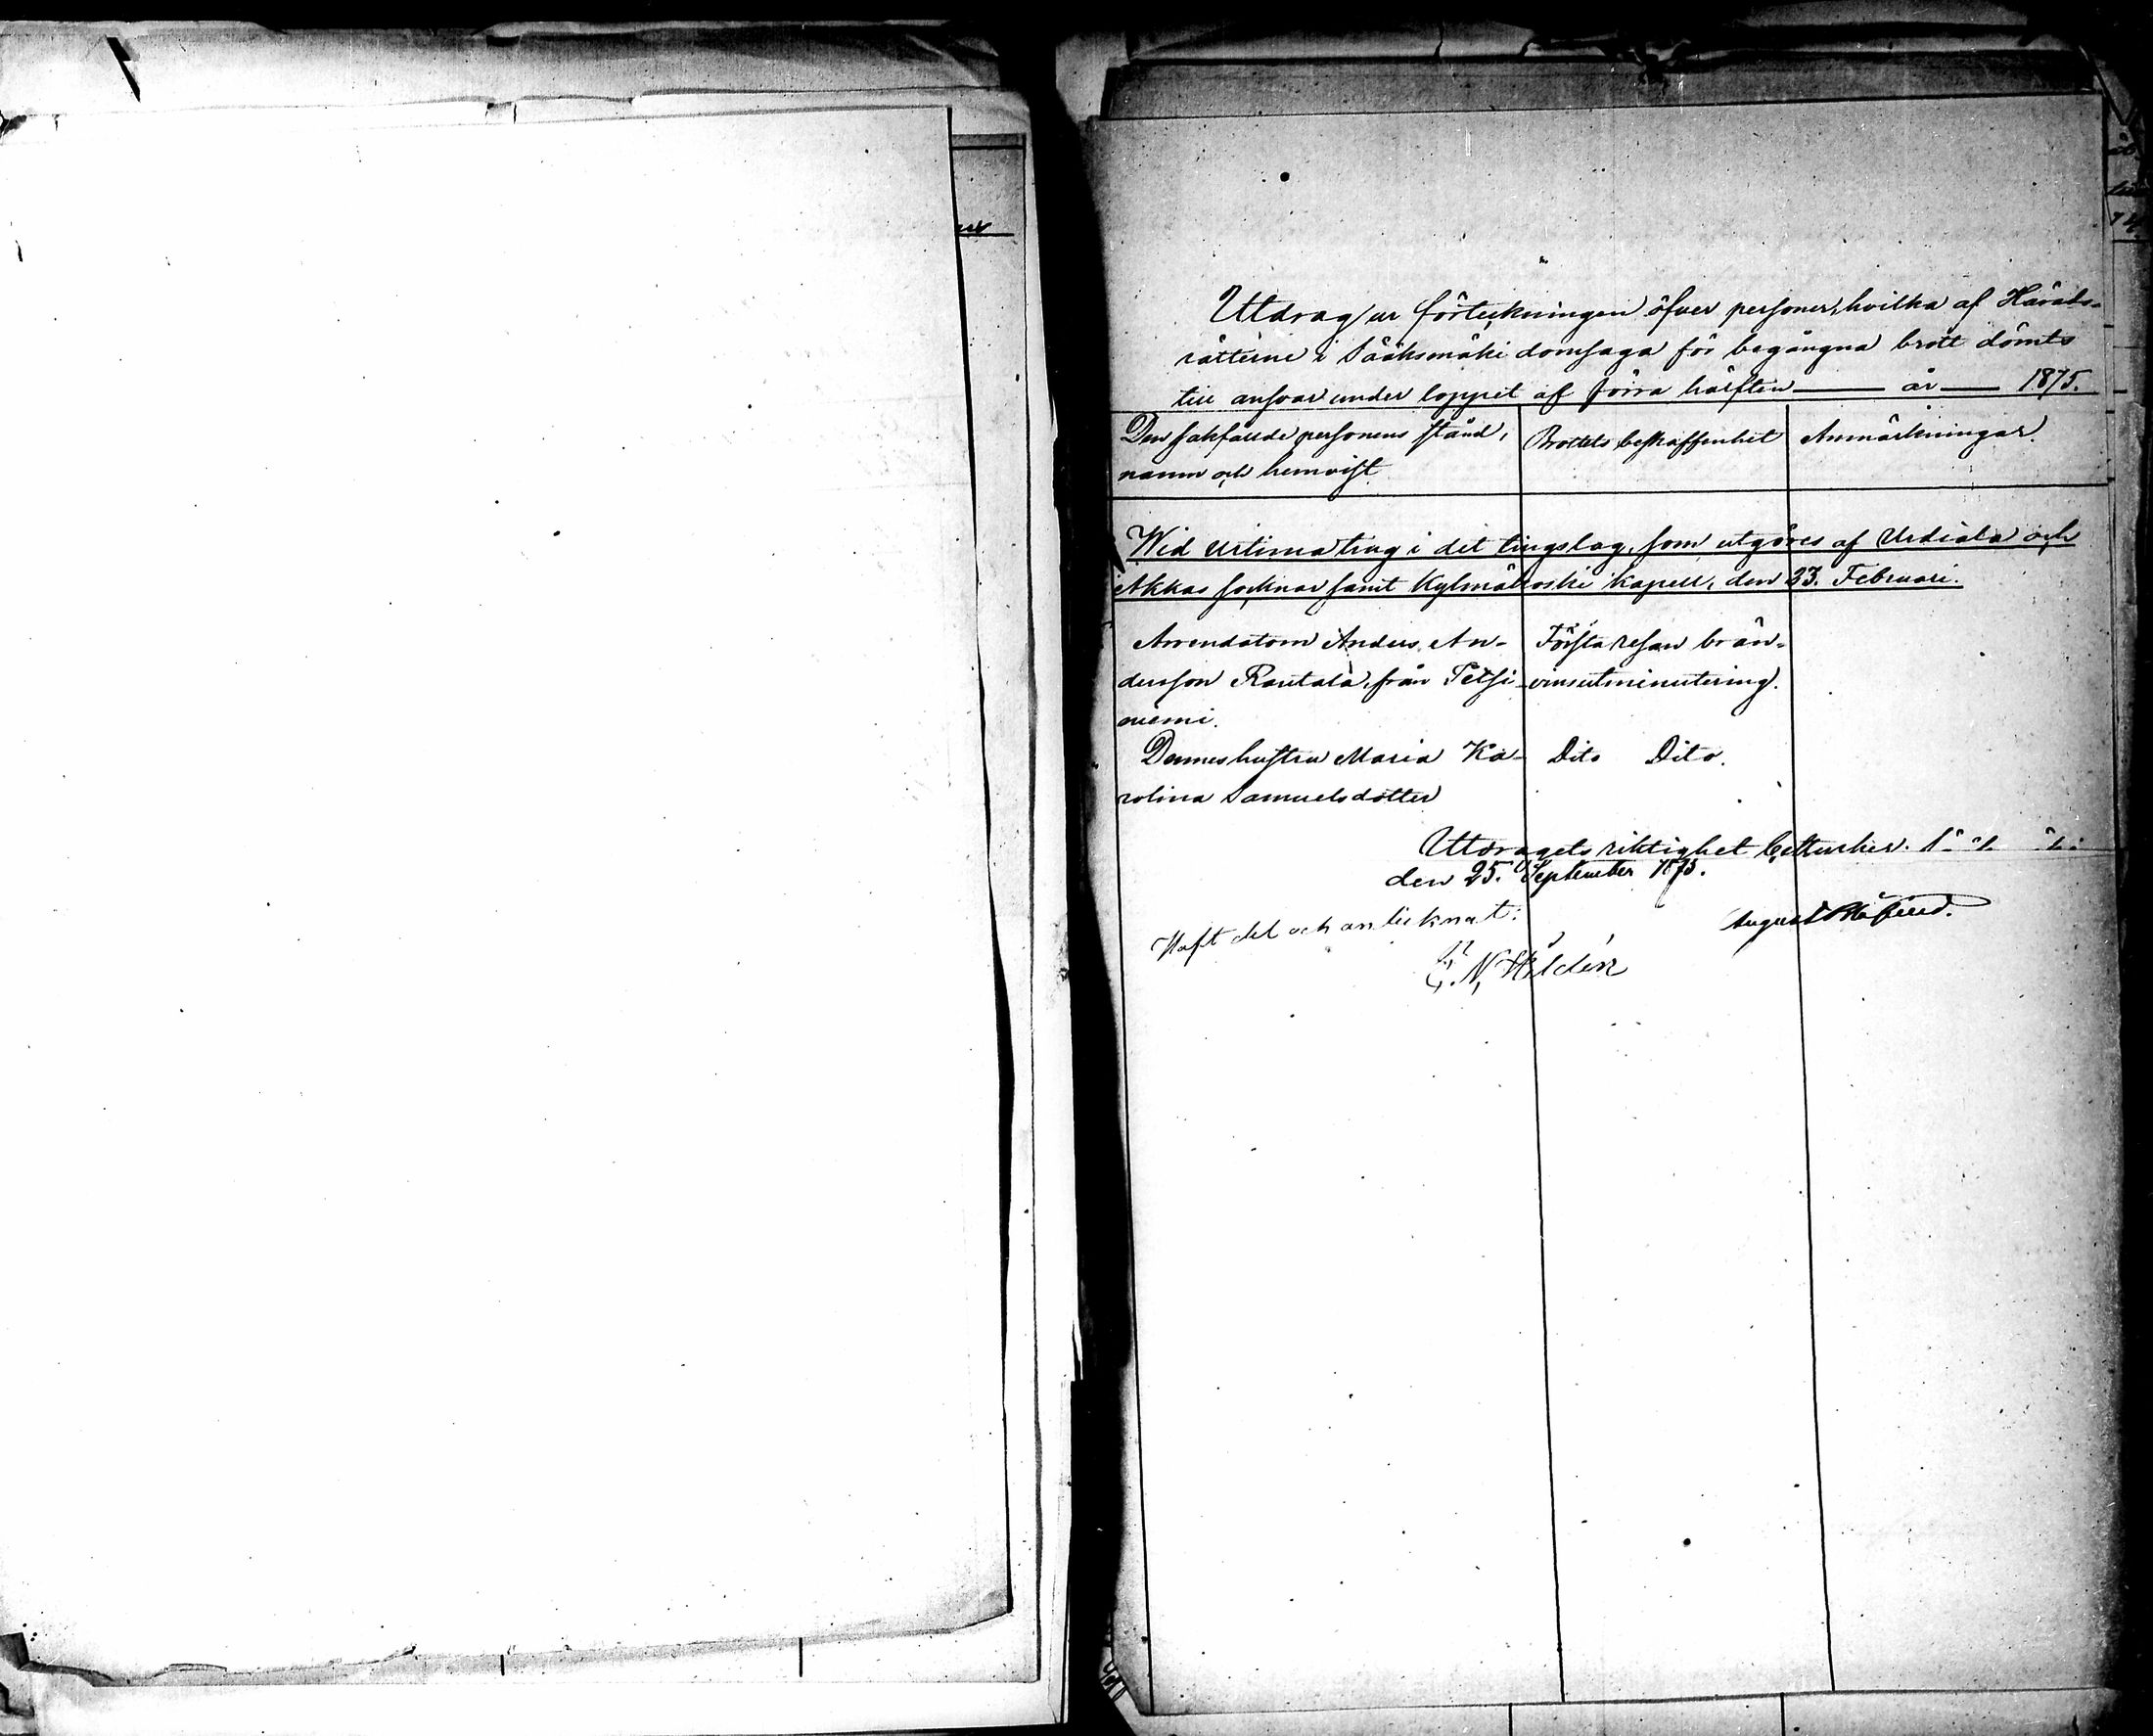 Utdrag ur förteckningen öfver personer, hvilka af Härads-
rätterne i Sääksmäki domsaga för begångna brott dömts
till ansvar under loppet af förra hälften — år — 1875.
Den sakfällde personens stånd,
namn och hemvist
Brottets beskaffenhet
Anmärkningar.
Wid urtima ting i det tingslag, som utgöres af Urdiala och
Akkas socknar samt Kylmäkoski kapell, den 23. Februari.
Arrendatorn Anders An-
dersson Rautala, från Palsi-
niemi.
Första resan brän-
vinsutminutering.
Dennes hustru Maria Ka-
rolina Samuelsdotter
Dito Dito.
Utdragets riktighet bestyrker.
den 25. September 1875.
August
Haft del och antecknat:
E. N. Hildén